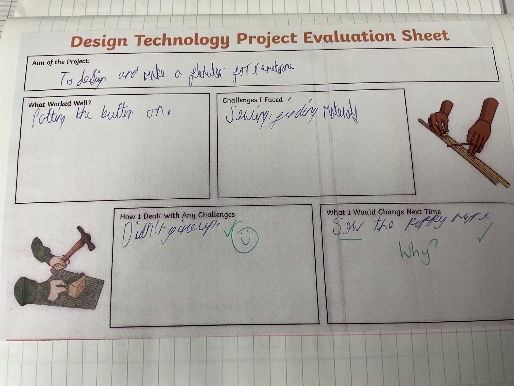 Design Technology Project Evaluation Sheet
Aim of the Project:
To design and make a for
What Worked Well?
Putting the button on.
Challenges I Faced
Sewing, finding materials
How I Dealt with Any Challenges
Didn't give up.
What I Would Change Next Time
Sew the Poppy more
Why?